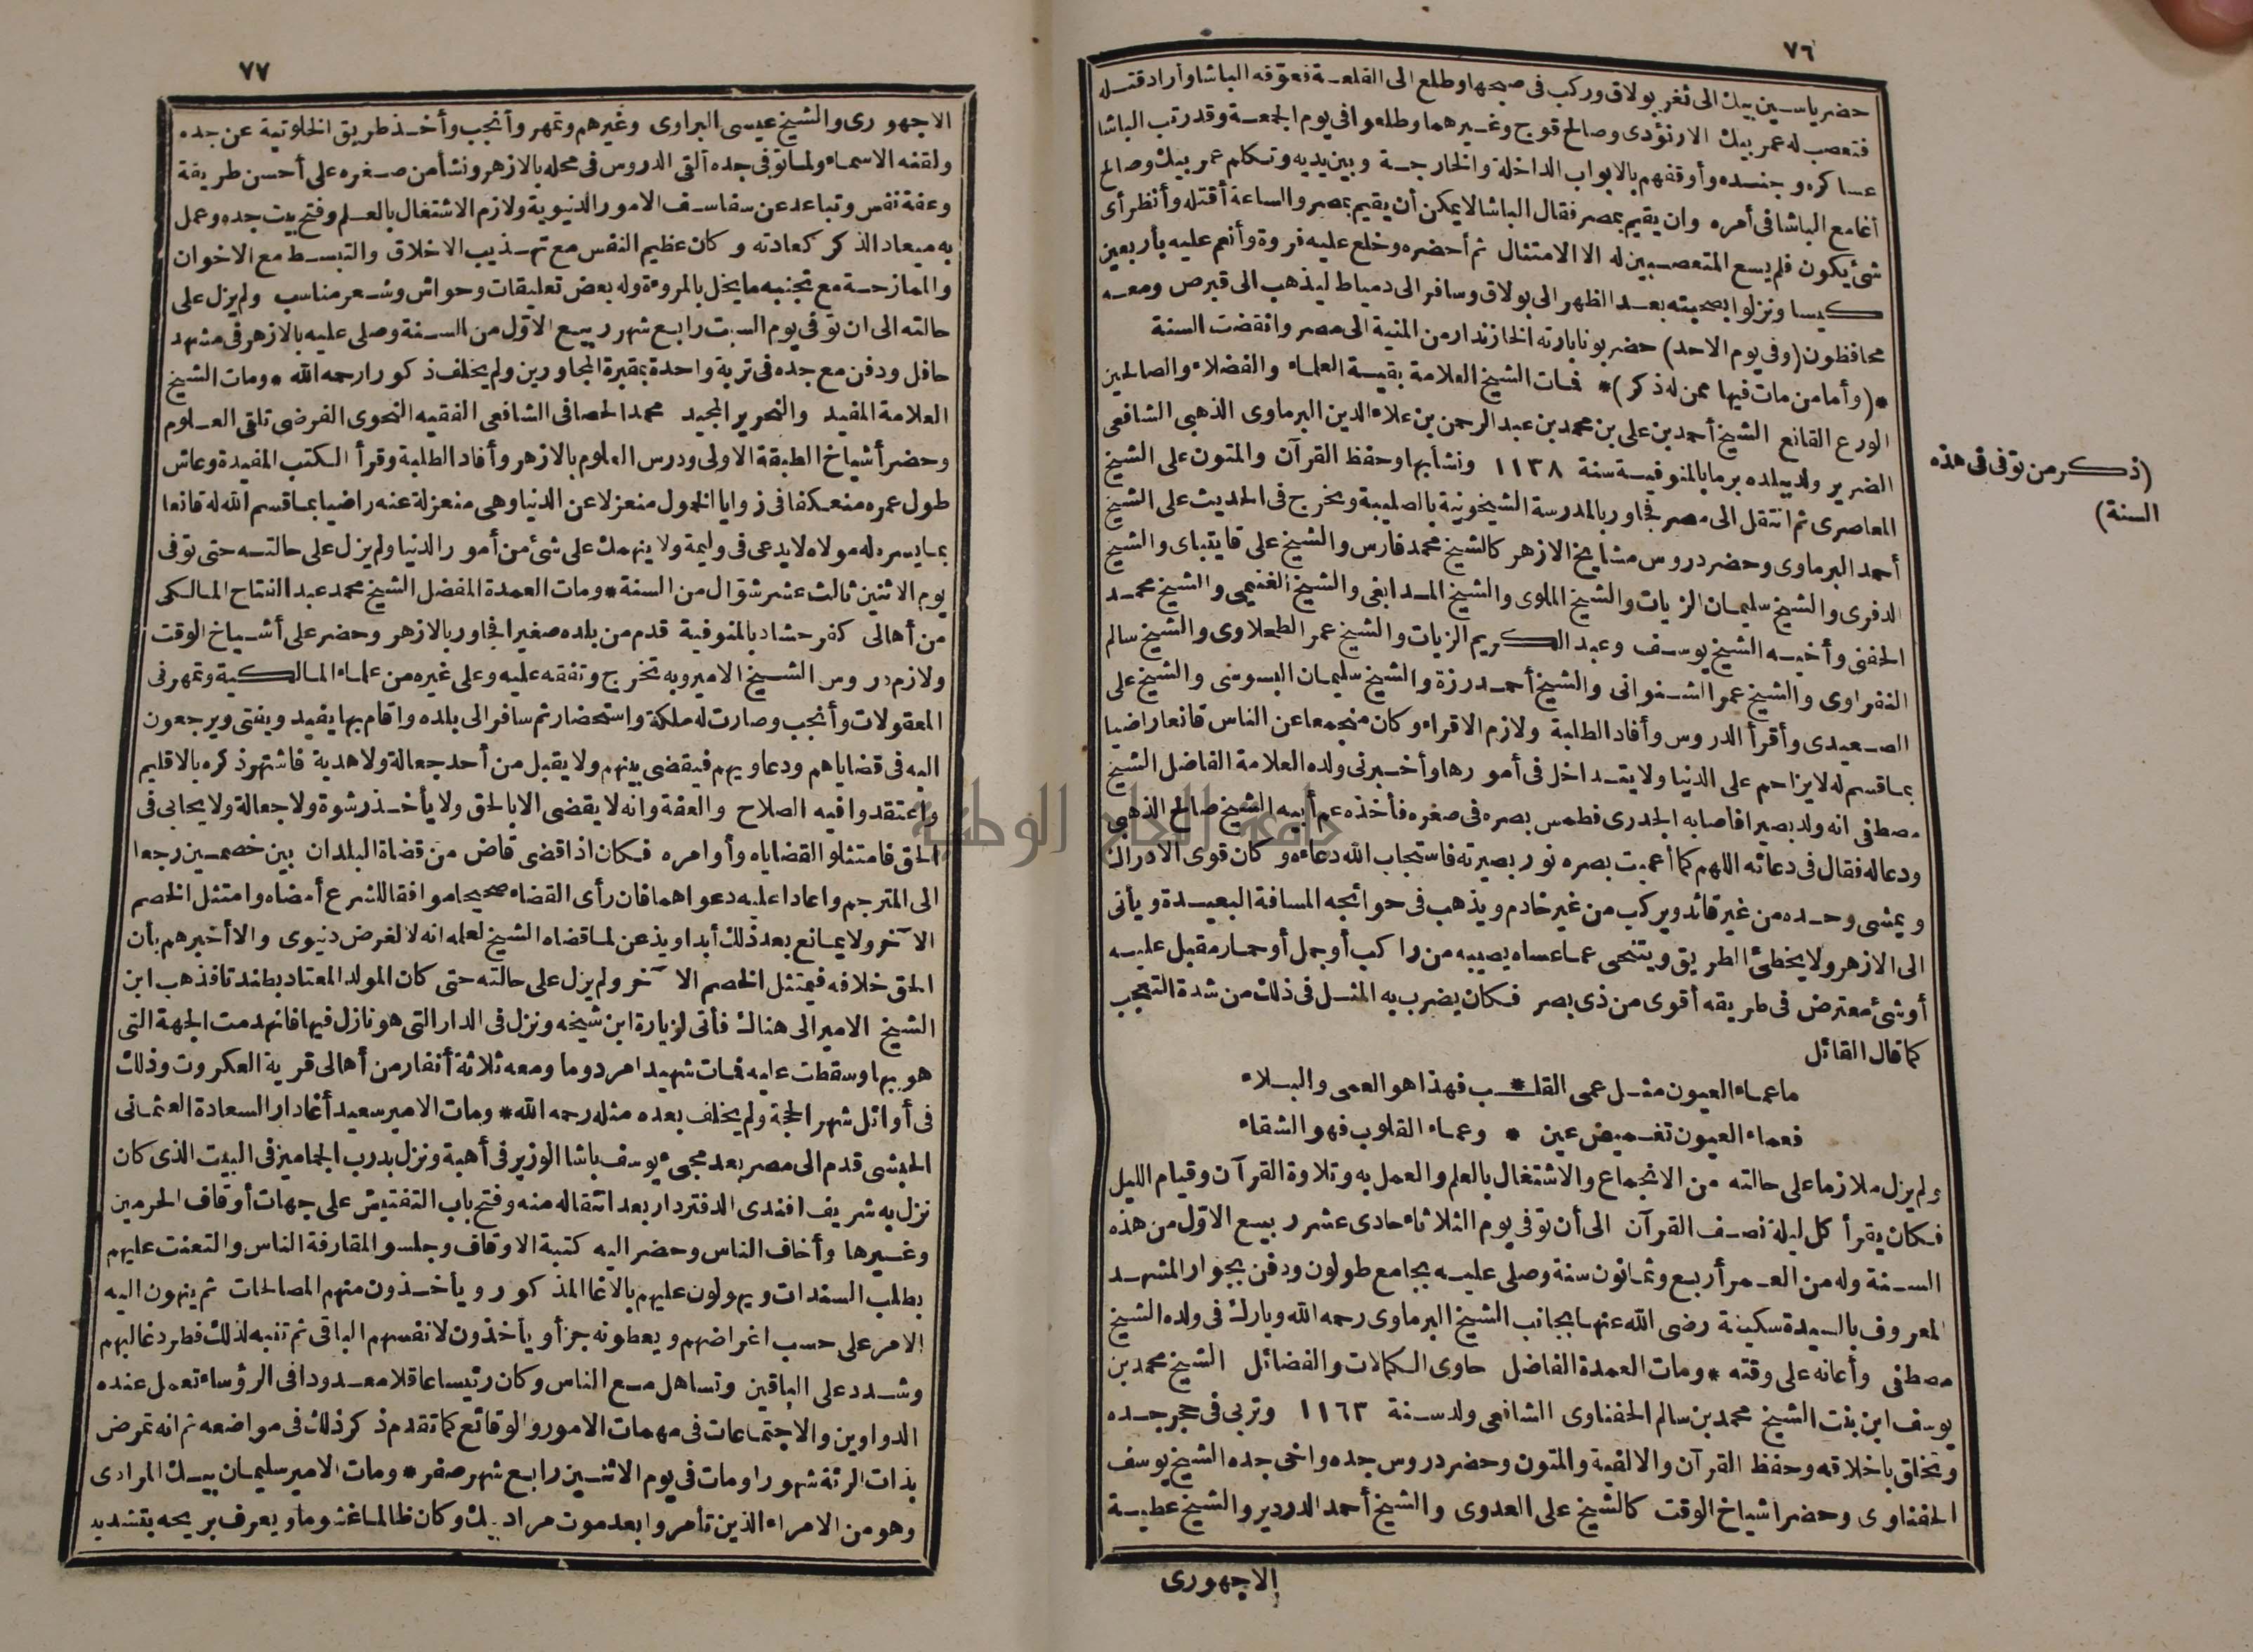 ٧٦
حضر ياسين بيك الى ثغر بولاق وركب فى صبحها وطلع الى القلعة فعوّقه الباشا وأراد قتله
فتعصب له عمر بيك الارنؤدى وصالح قوج وغيرهما وطلعوا فى يوم الجمعة وقد رتب الباشا
عساكره وجنده وأوقفهم بالابواب الداخلة والخارجة وبين يديه وتكلم عمر بيك وصالح
أغا مع الباشا فى أمره وان يقيم بمصر فقال الباشا لا يمكن أن يقيم بمصر والساعة أقتله وأنظر أى
شئ يكون فلم يسع المتعصبين له الا الامتثال ثم أحضره وخلع عليه فروة وأنعم عليه بأربعين
كيسا ونزلوا بصحبته بعد الظهر الى بولاق وسافر الى دمياط ليذهب الى قبرص ومعه
محافظون (وفى يوم الاحد) حضر بونابارته الخازندار من المنية الى مصر وانقضت السنة
*(وأما من مات فيها ممن له ذكر)* فمات الشيخ العلامة بقية العلماء والفضلاء والصالحين
الورع القانع الشيخ أحمد بن على بن محمد بن عبد الرحمن بن علاء الدين البرماوى الذهبى الشافعى
الضرير ولد ببلده برما بالمنوفية سنة ١١٣٨ ونشأ بها وحفظ القرآن والمتون على الشيخ
المعاصرى ثم انتقل الى مصر فجاور بالمدرسة الشيخونية بالصليبة وتخرج فى الحديث على الشيخ
أحمد البرماوى وحضر دروس مشايخ الازهر كالشيخ محمد فارس والشيخ على قايتباى والشيخ
الدفرى والشيخ سليمان الزيات والشيخ الملوى والشيخ المدابغى والشيخ الغنيمى والشيخ محمد
الحفنى وأخيه الشيخ يوسف وعبد الكريم الزيات والشيخ عمر الطحلاوى والشيخ سالم
النفراوى والشيخ عمر الشنوانى والشيخ أحمد رزة والشيخ سليمان البسوسى والشيخ على
الصعيدى وأقرأ الدروس وأفاد الطلبة ولازم الاقراء وكان منجمعا عن الناس قانعا راضيا
بما قسم له لا يزاحم على الدنيا ولا يتداخل فى أمورها وأخبرنى ولده العلامة الفاضل الشيخ
مصطفى انه ولد بصيرا فاصابه الجدرى فطمس بصره فى صغره فأخذه عم أبيه الشيخ صالح الذهبى
ودعا له فقال فى دعائه اللهم كما أعميت بصره نور بصيرته فاستجاب الله دعاءه وكان قوى الادراك
ويمشى وحده من غير قائد ويركب من غير خادم ويذهب فى حوائجه المسافة البعيدة ويأتى
الى الازهر ولا يخطئ الطريق ويتنحى عما عساه يصيبه من راكب أو جمل أو حمار مقبل عليه
أو شئ معترض فى طريقه أقوى من ذى بصر فكان يضرب به المثل فى ذلك من شدة التعجب
كما قال القائل
ما عماء العيون مثل عمى القلـ * ـب فهذا هو العمى والبلاء
فعماء العيون تغميض عين * وعماء القلوب فهو الشقاء
ولم يزل ملازما على حالته من الانجماع والاشتغال بالعلم والعمل به وتلاوة القرآن وقيام الليل
فكان يقرأ كل ليلة نصف القرآن الى أن توفى يوم الثلاثاء حادى عشر ربيع الاوّل من هذه
السنة وله من العمر أربع وثمانون سنة وصلى عليه بجامع طولون ودفن بجوار المشهد
المعروف بالسيدة سكينة رضى الله عنها بجانب الشيخ البرماوى رحمه الله وبارك فى ولده الشيخ
مصطفى وأعانه على وقته * ومات العمدة الفاضل حاوى الكمالات والفضائل الشيخ محمد بن
يوسف ابن بنت الشيخ محمد بن سالم الحفناوى الشافعى ولد سنة ١١٦٣ وتربى فى حجر جده
وتخلق باخلاقه وحفظ القرآن والالفية والمتون وحضر دروس جده واخى جده الشيخ يوسف
الحفناوى وحضر أشياخ الوقت كالشيخ على العدوى والشيخ أحمد الدردير والشيخ عطية
الاجهورى
(ذكر من توفى فى هذه
السنة)
٧٧
الاجهورى والشيخ عيسى البراوى وغيرهم وتمهر وأنجب وأخذ طريق الخلوتية عن جده
ولقنه الاسماء ولما توفى جده ألقى الدروس فى محله بالازهر ونشأ من صغره على أحسن طريقة
وعفة نفس وتباعد عن سفاسف الامور الدنيوية ولازم الاشتغال بالعلم وفتح بيت جده وعمل
به ميعاد الذكر كعادته وكان عظيم النفس مع تهذيب الاخلاق والتبسط مع الاخوان
والممازحة مع تجنبه ما يخل بالمروءة وله بعض تعليقات وحواش وشعر مناسب ولم يزل على
حالته الى ان توفى يوم السبت رابع شهر ربيع الاوّل من السنة وصلى عليه بالازهر فى مشهد
حافل ودفن مع جده فى تربة واحدة بمقبرة المجاورين ولم يخلف ذكورا رحمه الله * ومات الشيخ
العلامة المفيد والنحرير المجيد محمد الحصافى الشافعى الفقيه النحوى الفرضى تلقى العلوم
وحضر أشياخ الطبقة الاولى ودرس العلوم بالازهر وأفاد الطلبة وقرأ الكتب المفيدة وعاش
طول عمره منعكفا فى زوايا الخمول منعزلا عن الدنيا وهى منعزلة عنه راضيا بما قسم الله له قانعا
بما يسره له مولاه لا يدعى فى وليمة ولا ينهمك على شئ من أمور الدنيا ولم يزل على حالته حتى توفى
يوم الاثنين ثالث عشر شوّال من السنة * ومات العمدة المفضل الشيخ محمد عبد الفتاح المالكى
من أهالى كفر حشاد بالمنوفية قدم من بلده صغيرا فجاور بالازهر وحضر على أشياخ الوقت
ولازم دروس الشيخ الامير وبه تخرج وتفقه عليه وعلى غيره من علماء المالكية وتمهر فى
المعقولات وأنجب وصارت له ملكة واستحضار ثم سافر الى بلده واقام بها يفيد ويفتى ويرجعون
اليه فى قضاياهم ودعاويهم فيقضى بينهم ولا يقبل من أحد جعالة ولا هدية فاشتهر ذكره بالاقليم
واعتقدوا فيه الصلاح والعفة وانه لا يقضى الا بالحق ولا يأخذ رشوة ولا جعالة ولا يحابى فى
الحق فامتثلوا لقضاياه وأوامره فكان اذا قضى قاض من قضاة البلدان بين خصمين رجعا
الى المترجم واعادا عليه دعواهما فان رأى القضاء صحيحا موافقا للشرع أمضاه وامتثل الخصم
الآخر ولا يمانع بعد ذلك أبدا ويذعن لما قضاه الشيخ لعلمه انه لا لغرض دنيوى والا أخبرهم بأن
الحق خلافه فيمتثل الخصم الآخر ولم يزل على حالته حتى كان المولد المعتاد بطندتا فذهب ابن
الشيخ الامير الى هناك فأتى لزيارة ابن شيخه ونزل فى الدار التى هو نازل فيها فانهدمت الجهة التى
هو بها وسقطت عليه فمات شهيدا مردوما ومعه ثلاثة أنفار من أهالى قرية العكروت وذلك
فى أوائل شهر الحجة ولم يخلف بعده مثله رحمه الله * ومات الامير سعيد أغا دار السعادة العثمانى
الحبشى قدم الى مصر بعد مجىء يوسف باشا الوزير فى أهبة ونزل بدرب الجماميز فى البيت الذى كان
نزل به شريف افندى الدفتردار بعد انتقاله منه وفتح باب التفتيش على جهات أوقاف الحرمين
وغيرها وأخاف الناس وحضر اليه كتبة الاوقاف وجلسوا لمقارفة الناس والتعنت عليهم
بطلب السندات ويهولون عليهم بالاغا المذكور ويأخذون منهم المصالحات ثم ينهون اليه
الامر على حسب اغراضهم ويعطونه جزأ ويأخذون لانفسهم الباقى ثم تنبه لذلك فطرد غالبهم
وشدد على الباقين وتساهل مع الناس وكان رئيسا عاقلا معدودا فى الرؤساء تعمل عنده
الدواوين والاجتماعات فى مهمات الامور والوقائع كما تقدم ذكر ذلك فى مواضعه ثم انه تمرض
بذات الرئة شهورا ومات فى يوم الاثنين رابع شهر صفر * ومات الامير سليمان بيك المرادى
وهو من الامراء الذين تأمروا بعد موت مراد بيك وكان ظالما غشوما ويعرف بريحه بتشديد
جامعة النجاح الوطنية